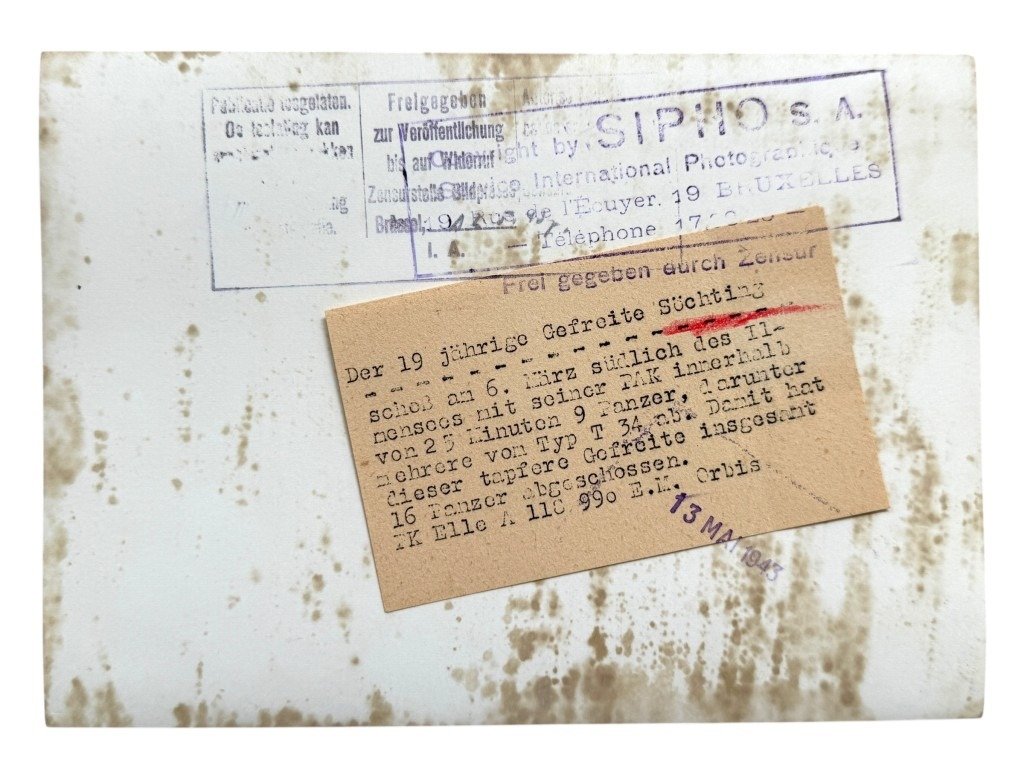 Publicatie toegelaten.
De toelating kan
Freigegeben
zur Veröffentlichung
bis auf Widerruf
Zensurstelle Bildpresse
Brüssel,
I. A.
SIPHO S. A.
Copyright by
Service International Photographique
19, Rue de l'Ecuyer, 19 BRUXELLES
— Téléphone 17.
Frei gegeben durch Zensur
Der 19 jährige Gefreite Söchting
schoß am 6. März südlich des Il-
mensees mit seiner PAK innerhalb
von 25 Minuten 9 Panzer, darunter
mehrere vom Typ T 34 ab. Damit hat
dieser tapfere Gefreite insgesamt
16 Panzer abgeschossen.
PK Elle A 118 99o E.M. Orbis
13 MAI 1943